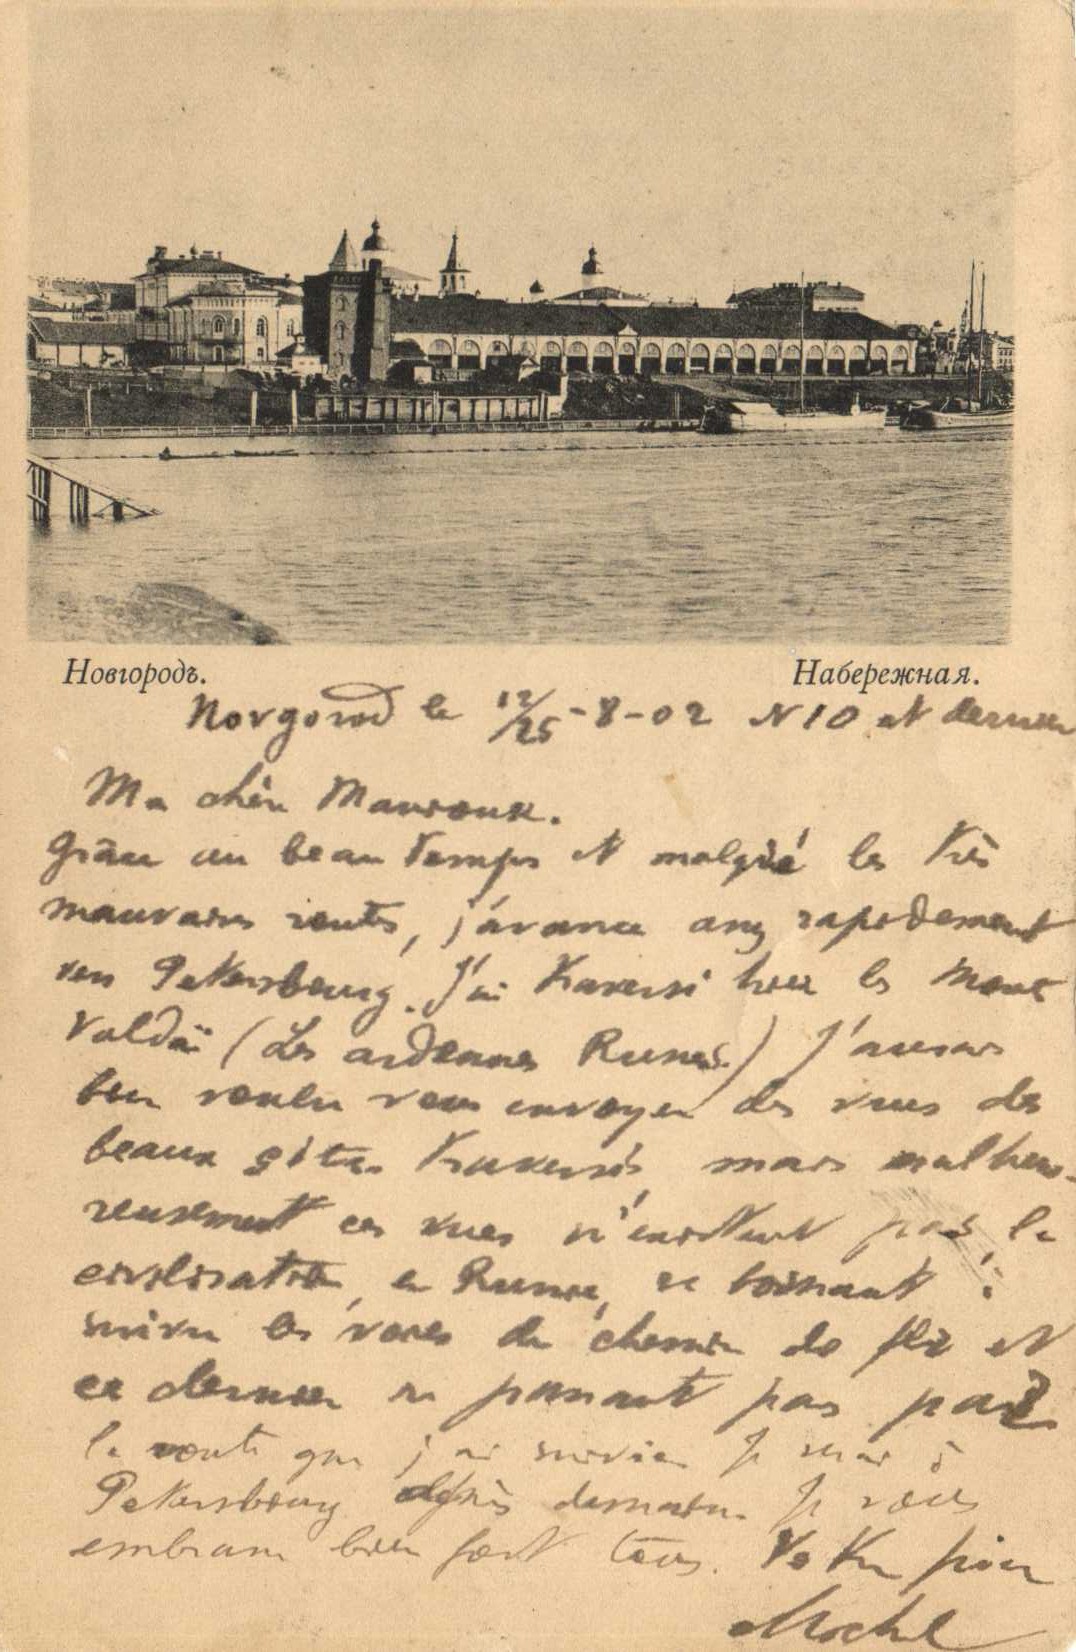 Новгородъ.
Набережная.
Novgorod le 12/25-8-02 N 10 et dernier
Ma chère
Grâce au beau temps et malgré les très
mauvaises routes, j'avance assez rapidement
vers Petersbourg. J'ai traversé hier les Monts
Valdaï (Les ardennes Russes.) J'aurais
bien voulu vous envoyer des vues des
beaux sites traversés, mais malheu-
reusement ces vues n'existent pas, la
civilisation, en Russie, se bornant à
suivre les voies du chemin de fer et
ce dernier ne passant pas par
la route que j'ai suivie. Je serai à
Petersbourg après demain. Je vous
embrasse bien fort tous. Votre